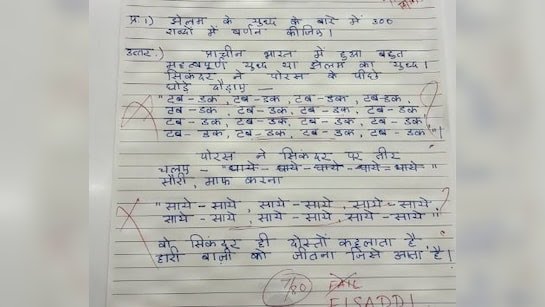 प्र.1) झेलम के युध्द के बारे में 300
शब्दों में वर्णन कीजिए।
उत्तर:) प्राचीन भारत में हुआ बहुत
महत्वपूर्ण युध्द था झेलम का युध्द।
सिकंदर ने पोरस के पीछे
घोड़े दौड़ाए —
"टब-डक, टब-डक, टब-डक, टब-डक,
टब-डक, टब-डक, टब-डक, टब-डक,
टब-डक, टब-डक, टब-डक, टब-डक
टब-डक, टब-डक, टब-डक, टब-डक"।
?
पोरस ने सिकंदर पर तीर
चलाए - "धाये-धाये-धाये-धाये-धाये"
सॉरी, माफ करना
"साये-साये, साये-साये, साये-साये,
साये-साये, साये-साये, साये-साये"
?
वो सिकंदर ही दोस्तों कहलाता है,
हारी बाज़ी को जीतना जिसे आता है।
7/80
FAIL
FISADDI